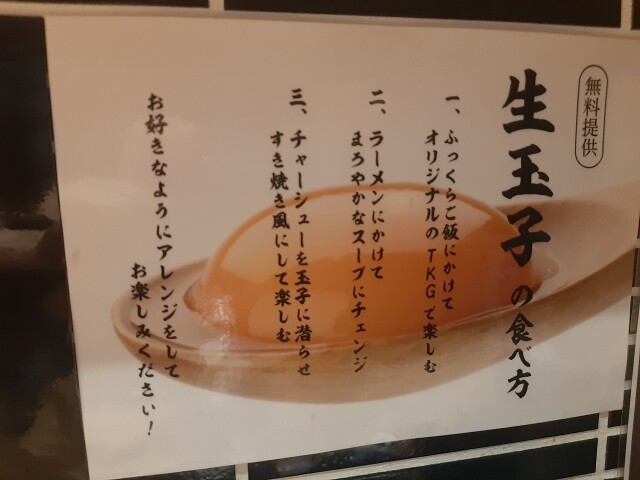 無料提供
生玉子の食べ方
一、ふっくらご飯にかけて
オリジナルのTKGで楽しむ
二、ラーメンにかけて
まろやかなスープにチェンジ
三、チャーシューを玉子に潜らせ
すき焼き風にして楽しむ
お好きなようにアレンジをして
お楽しみください!